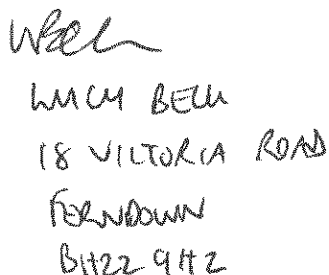 LUCY BELL
18 VICTORIA ROAD
FERNDOWN
BH22 9HZ